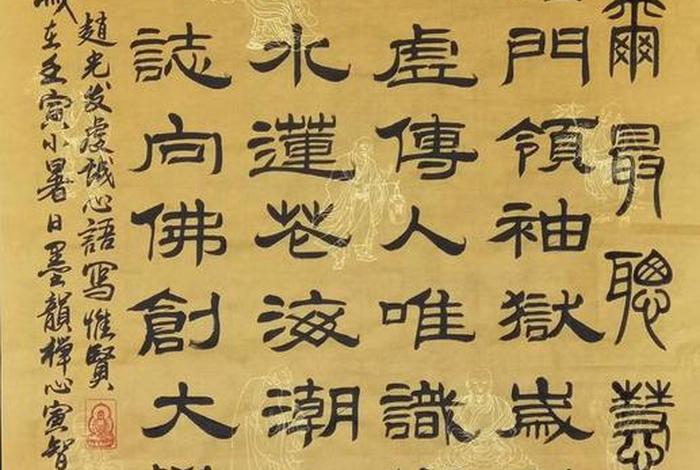 爾最聰慧
門領袖獄歲
虛傳人唯識
水蓮花海潮
誌向佛創大
趙光發虔誠心語寫惟賢
在壬寅小暑日墨韻禪心寅智